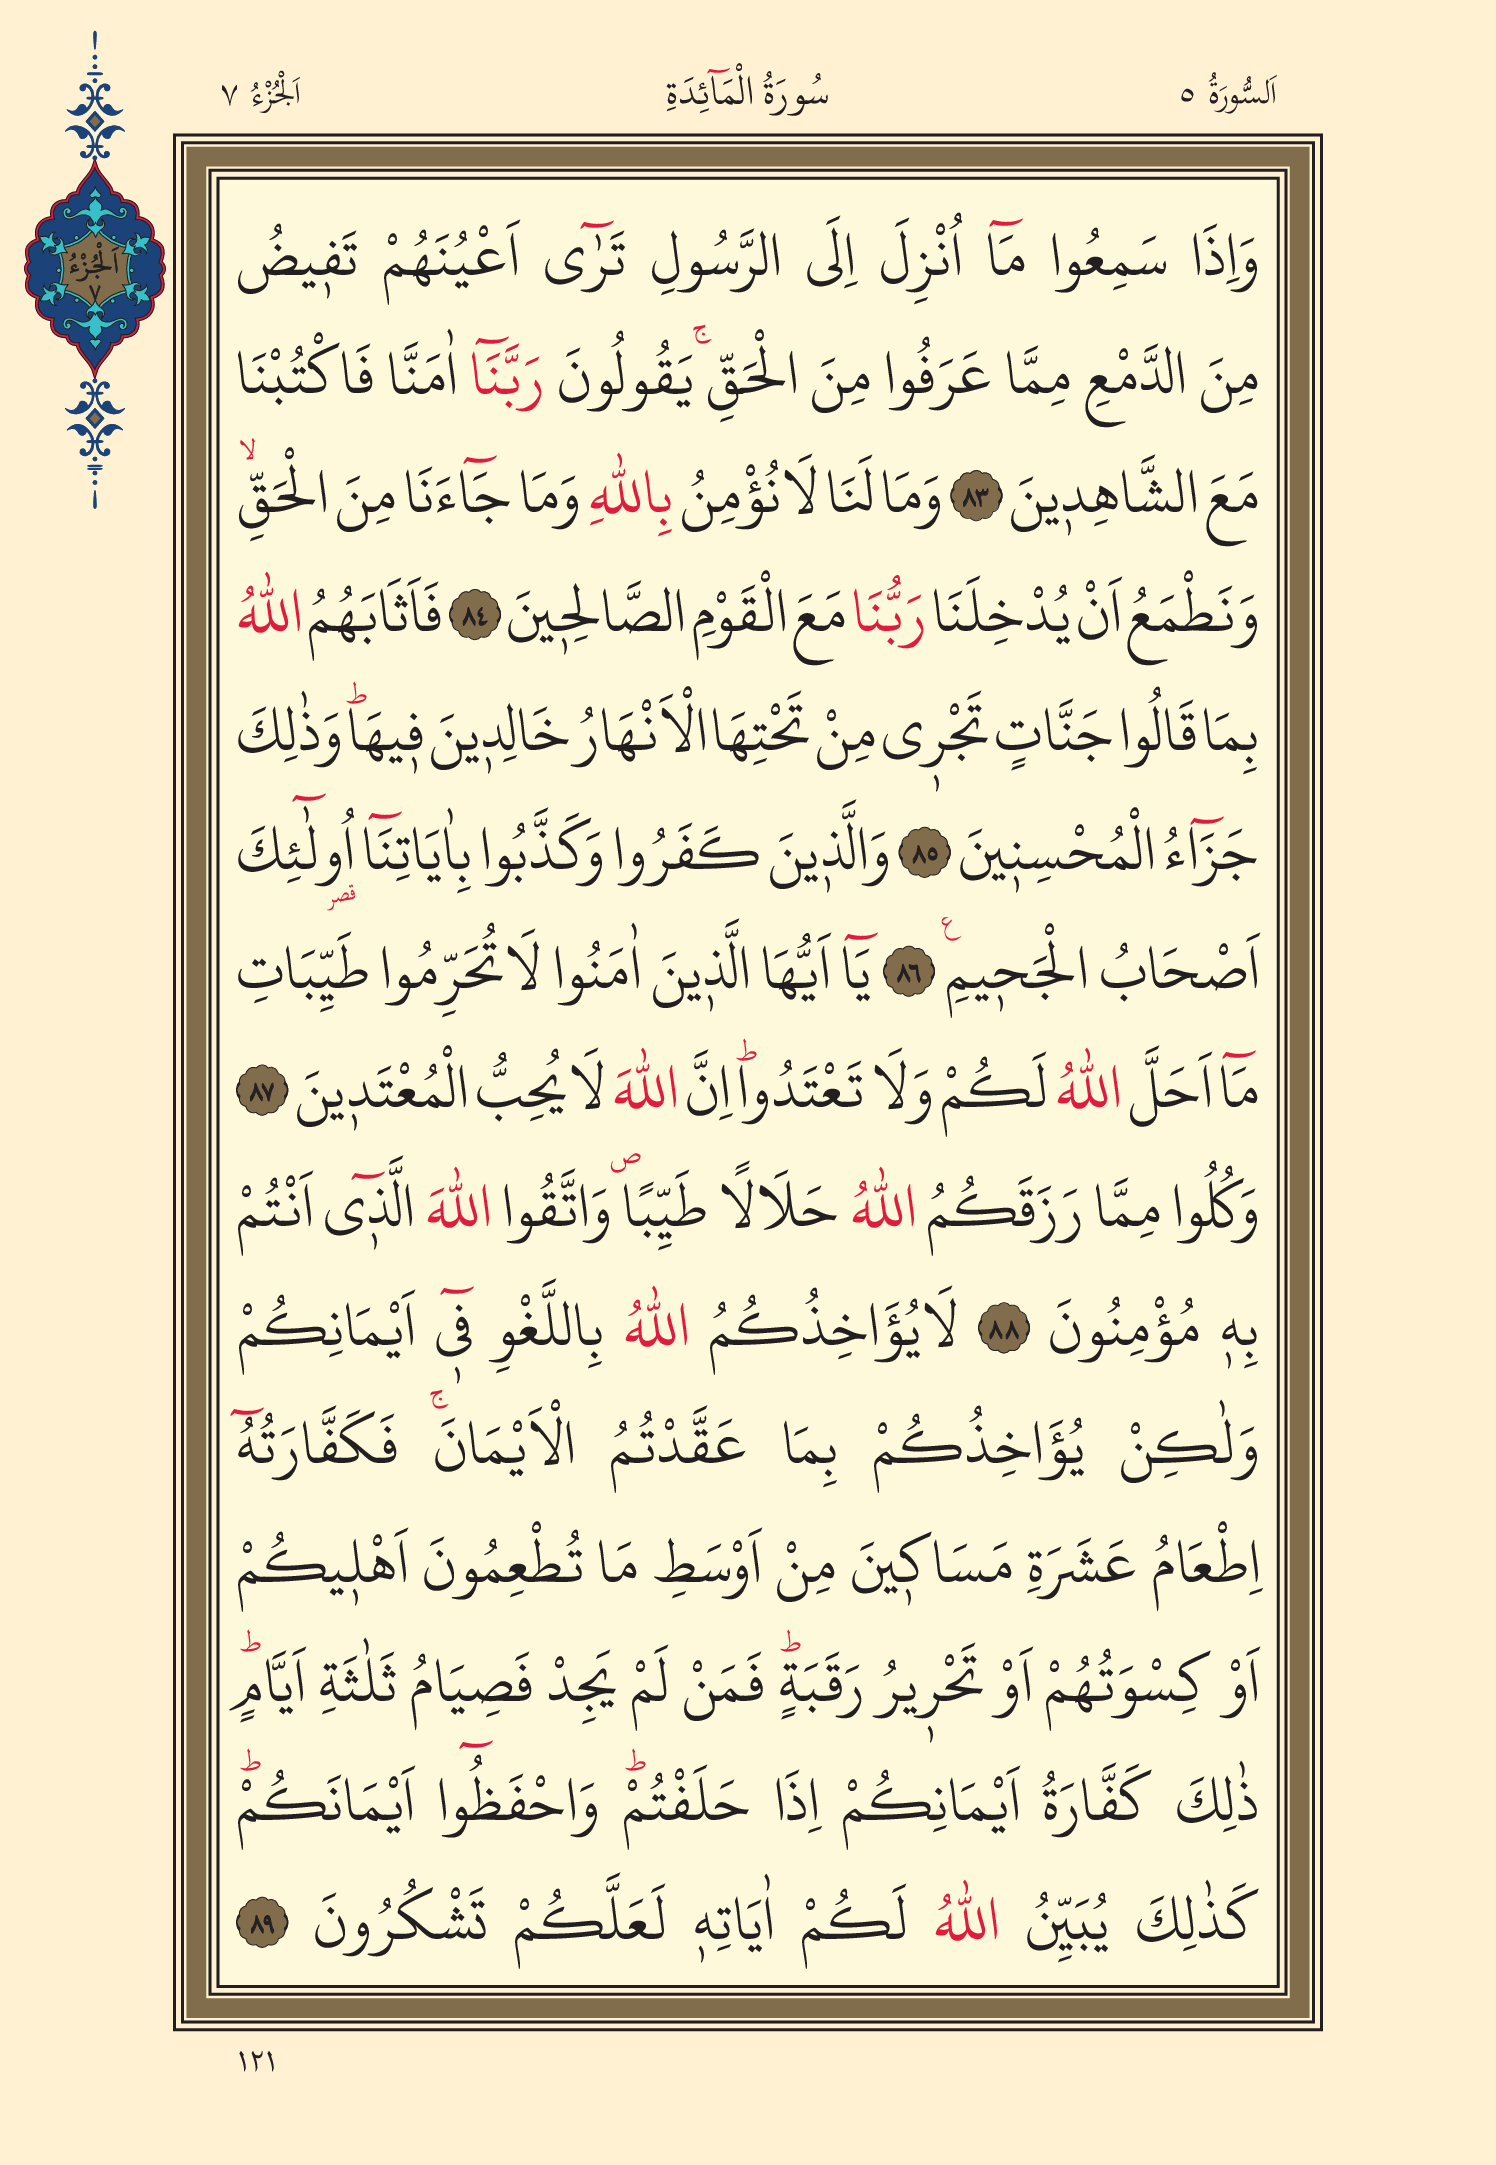 اَلسُّورَةُ ٥ سُورَةُ الْمَآئِدَةِ اَلْجُزْءُ ٧
اَلْجُزْءُ
٧
وَاِذَا سَمِعُوا مَآ اُنْزِلَ اِلَى الرَّسُولِ تَرٰٓى اَعْيُنَهُمْ تَف۪يضُ
مِنَ الدَّمْعِ مِمَّا عَرَفُوا مِنَ الْحَقِّۚ يَقُولُونَ رَبَّنَآ اٰمَنَّا فَاكْتُبْنَا
مَعَ الشَّاهِد۪ينَ ٨٣ وَمَا لَنَا لَا نُؤْمِنُ بِاللّٰهِ وَمَا جَآءَنَا مِنَ الْحَقِّۙ
وَنَطْمَعُ اَنْ يُدْخِلَنَا رَبُّنَا مَعَ الْقَوْمِ الصَّالِح۪ينَ ٨٤ فَاَثَابَهُمُ اللّٰهُ
بِمَا قَالُوا جَنَّاتٍ تَجْر۪ى مِنْ تَحْتِهَا الْاَنْهَارُ خَالِد۪ينَ ف۪يهَاۜ وَذٰلِكَ
جَزَآءُ الْمُحْسِن۪ينَ ٨٥ وَالَّذ۪ينَ كَفَرُوا وَكَذَّبُوا بِاٰيَاتِنَآ اُولٰٓئِكَ
قصر
اَصْحَابُ الْجَح۪يمِ ع ٨٦ يَآ اَيُّهَا الَّذ۪ينَ اٰمَنُوا لَا تُحَرِّمُوا طَيِّبَاتِ
مَآ اَحَلَّ اللّٰهُ لَكُمْ وَلَا تَعْتَدُواۜ اِنَّ اللّٰهَ لَا يُحِبُّ الْمُعْتَد۪ينَ ٨٧
وَكُلُوا مِمَّا رَزَقَكُمُ اللّٰهُ حَلَالًا طَيِّبًاۖ وَاتَّقُوا اللّٰهَ الَّذ۪ٓى اَنْتُمْ
بِه۪ مُؤْمِنُونَ ٨٨ لَا يُؤَاخِذُكُمُ اللّٰهُ بِاللَّغْوِ ف۪ٓى اَيْمَانِكُمْ
وَلٰكِنْ يُؤَاخِذُكُمْ بِمَا عَقَّدْتُمُ الْاَيْمَانَۚ فَكَفَّارَتُهُٓ
اِطْعَامُ عَشَرَةِ مَسَاك۪ينَ مِنْ اَوْسَطِ مَا تُطْعِمُونَ اَهْل۪يكُمْ
اَوْ كِسْوَتُهُمْ اَوْ تَحْر۪يرُ رَقَبَةٍۜ فَمَنْ لَمْ يَجِدْ فَصِيَامُ ثَلٰثَةِ اَيَّامٍۜ
ذٰلِكَ كَفَّارَةُ اَيْمَانِكُمْ اِذَا حَلَفْتُمْۜ وَاحْفَظُٓوا اَيْمَانَكُمْۜ
كَذٰلِكَ يُبَيِّنُ اللّٰهُ لَكُمْ اٰيَاتِه۪ لَعَلَّكُمْ تَشْكُرُونَ ٨٩
١٢١